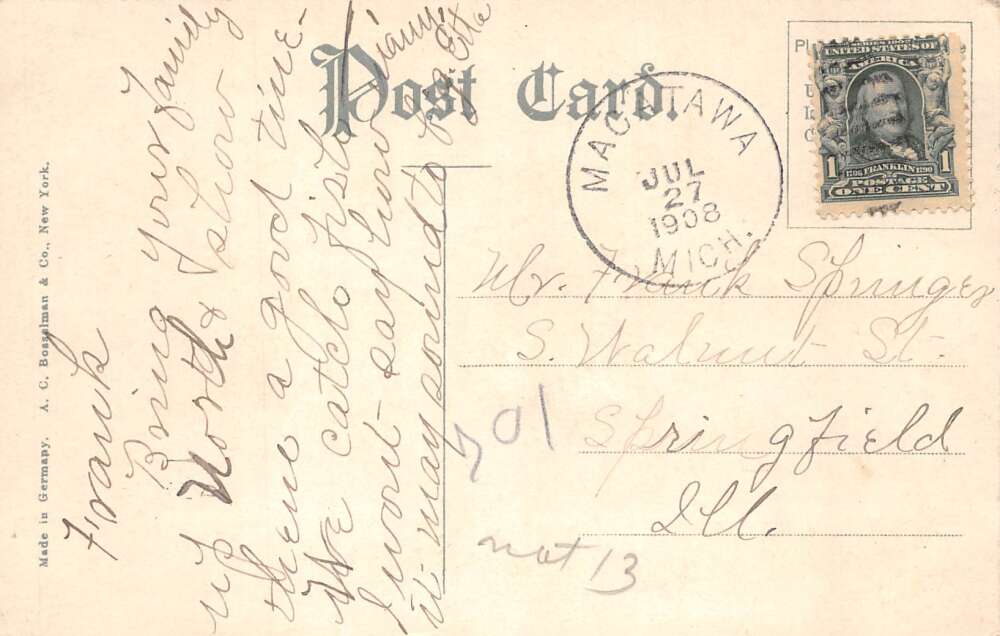 Post Card.
MACATAWA
JUL
27
1908
MICH.
SERIES 1902
UNITED STATES OF
AMERICA
1 FRANKLIN 1
POSTAGE
ONE CENT
Mr. Frank Springer
S. Walnut St.
Springfield
Ill.
701
not 13
Frank
Bring your family
up North & show
them a good time-
We catch fish
I wont say how many
it may sound to
Made in Germany. A. C. Bosselman & Co., New York.